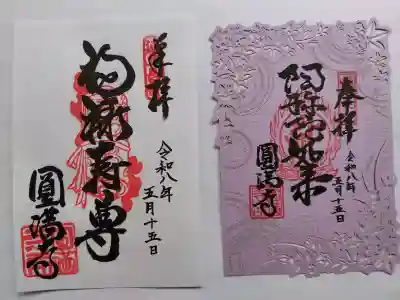 奉拝
令和八年
五月十五日
圓満寺
奉拝
令和八年
五月十五日
阿弥陀如来
圓満寺